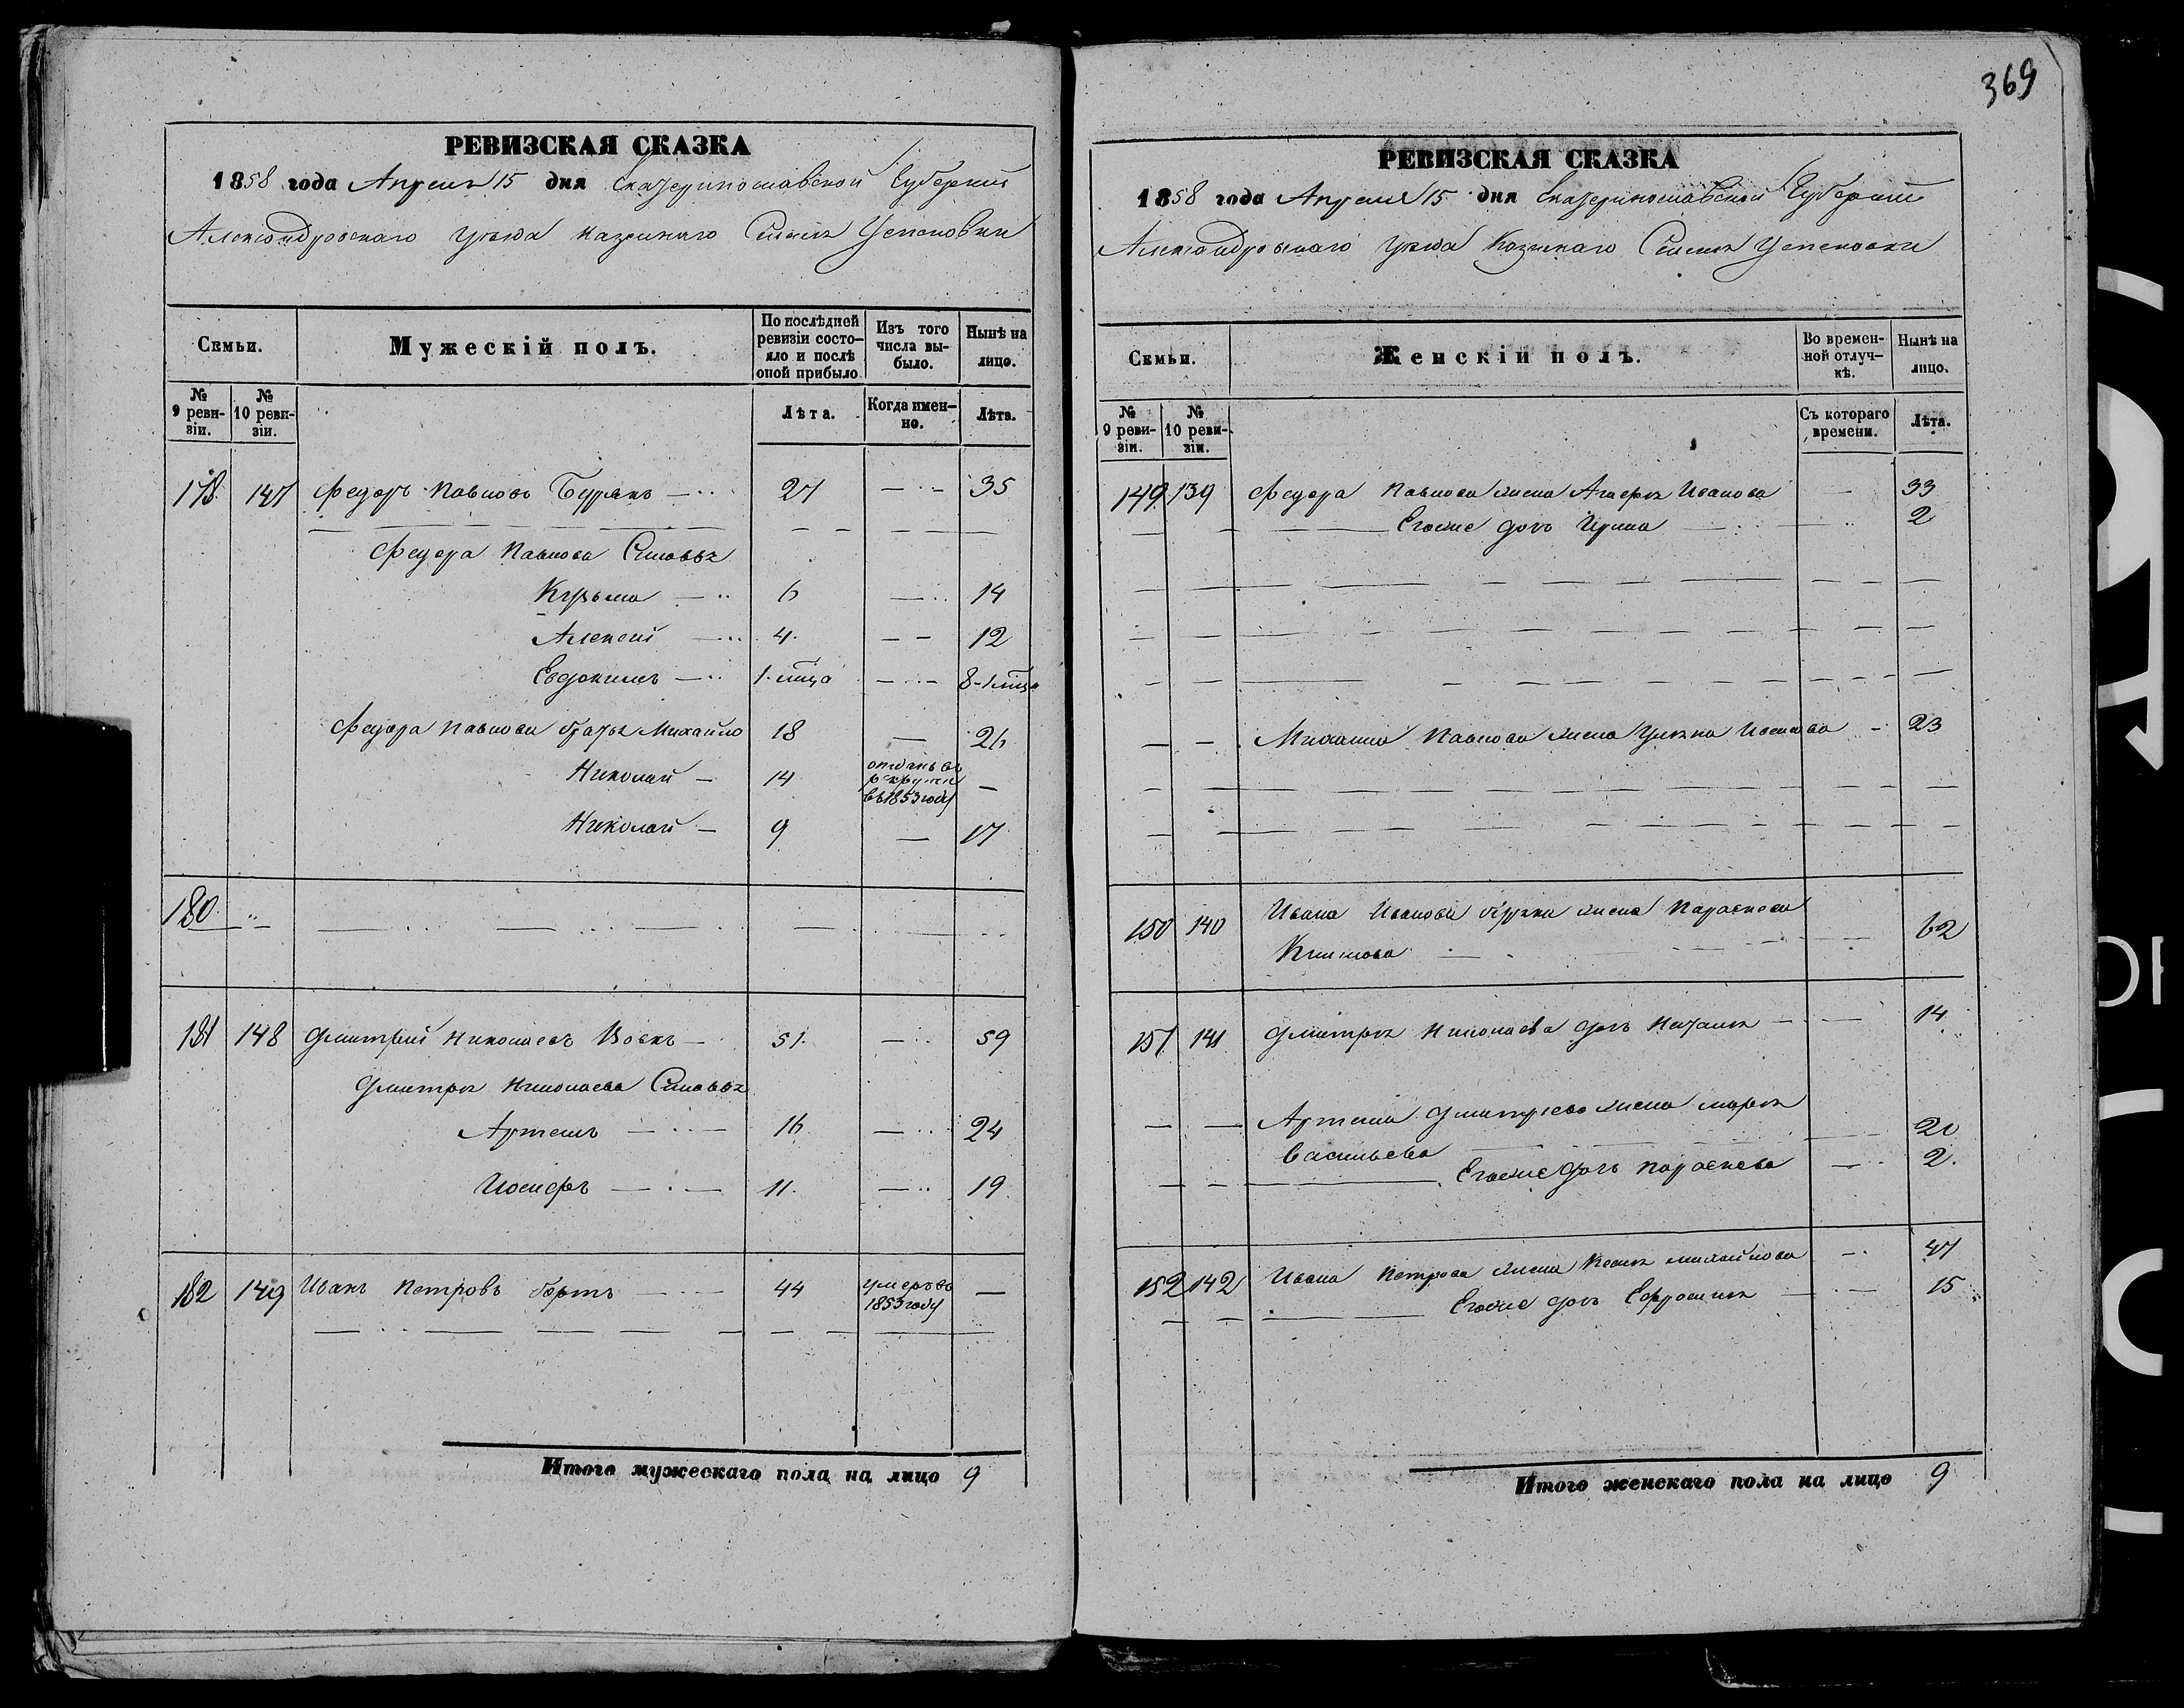 369
РЕВИЗСКАЯ СКАЗКА
1858 года Апреля 15 дня Екатеринославской Губернии
Александровскаго уезда казеннаго Селенія Успеновки
Семьи.
Мужескій полъ.
По послѣдней ревизіи состо-
яло и послѣ
оной прибыло.
Изъ того
числа вы-
было.
Нынѣ на
лицо.
№
9 реви-
зіи.
№
10 реви-
зіи.
Лѣта.
Когда имен-
но.
Лѣта.
178 147 Федоръ Павловъ Бурякъ 27 35
Федора Павлова Сыновья
Кузьма 6 14
Алексей 4 12
Евдокимъ 1 м-ца 8-1 м-ца
Федора Павлова братья Михайло 18 26
Николай 14 отданъ въ
рекруты
въ 1853 году
Николай 9 17
180
181 148 Дмитрий Николаевъ Вовкъ 51 59
Дмитрія Николаева Сыновья
Артемъ 16 24
Иосифъ 11 19
182 149 Иванъ Петровъ 44 умеръ въ
1853 году
Итого мужескаго пола на лицо 9
РЕВИЗСКАЯ СКАЗКА
1858 года Апреля 15 дня Екатеринославской Губернии
Александровскаго уезда Казеннаго Селенія Успеновки
Семьи.
Женскій полъ.
Во времен-
ной отлуч-
кѣ.
Нынѣ на
лицо.
№
9 реви-
зіи.
№
10 реви-
зіи.
Съ котораго
времени.
Лѣта.
149 139 Федора Павлова жена Иванова 33
Егоже дочь Ирина 2
Михаила Павлова жена Ульяна 23
150 140 Ивана Иванова жена Параскева 62
Климова
151 141 Дмитрія Николаева дочь Наталья 14
Артема Дмитриева жена Марья
Васильева 20
Егоже дочь Параскева 2
152 142 Ивана Петрова жена Михайлова 47
Егоже дочь Ефросинія 15
Итого женскаго пола на лицо 9